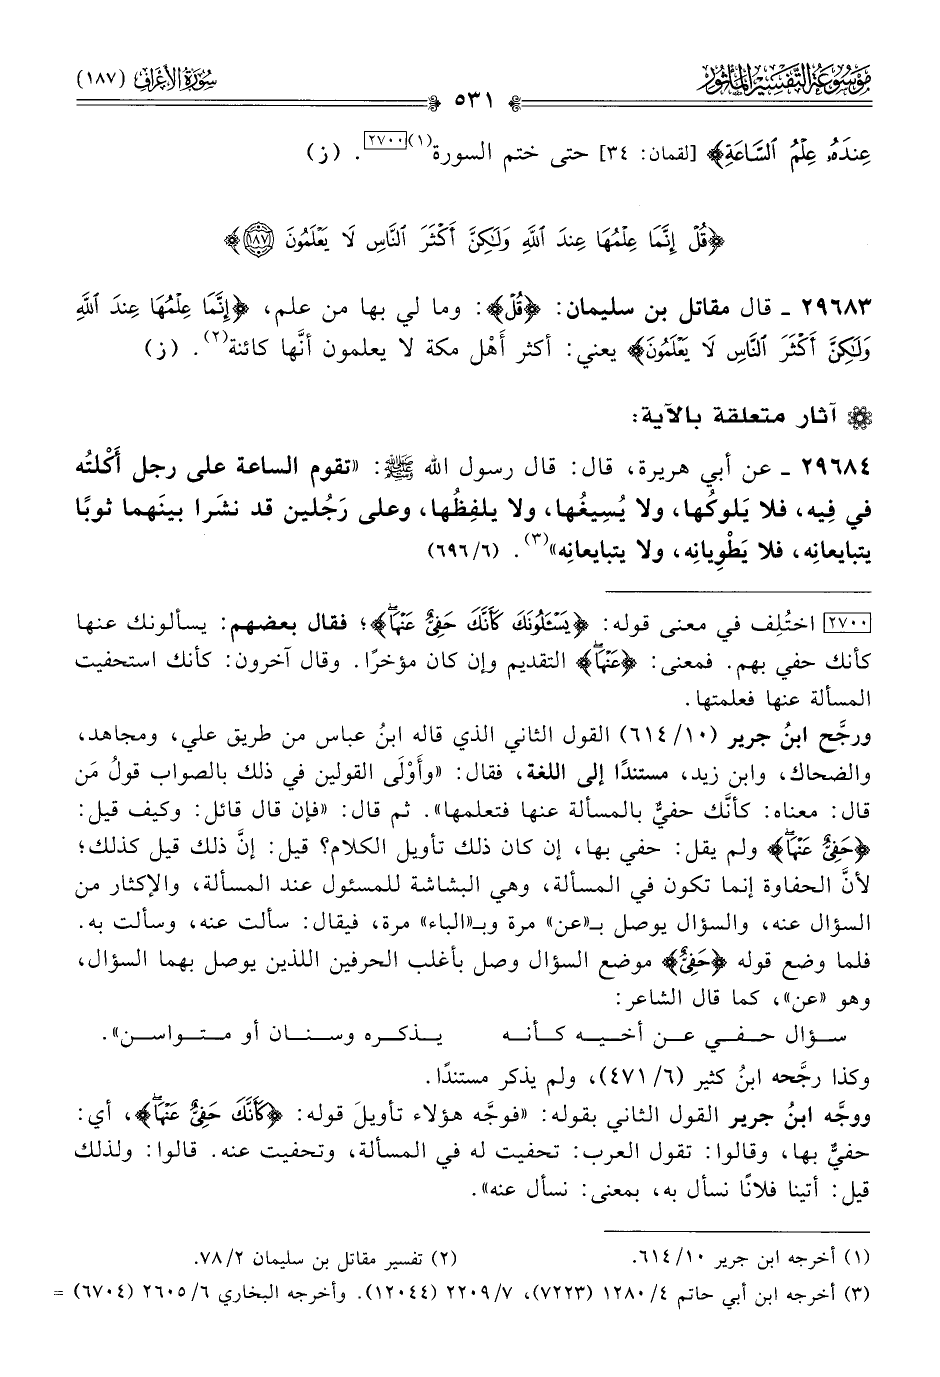 مَوْسُوعَة التَّفْسِيْر المَأْثُور
سُورَةُ الأَعْرَافِ (١٨٧)
٥٣١
عِندَهُۥ عِلْمُ ٱلسَّاعَةِ﴾ [لقمان: ٣٤] حتى ختم السورة(١)[٢٧٠٠]. (ز)
﴿قُلْ إِنَّمَا عِلْمُهَا عِندَ ٱللَّهِ وَلَٰكِنَّ أَكْثَرَ ٱلنَّاسِ لَا يَعْلَمُونَ ١٨٧﴾
٢٩٦٨٣ ـ قال مقاتل بن سليمان: ﴿قُلْ﴾: وما لي بها من علم، ﴿إِنَّمَا عِلْمُهَا عِندَ ٱللَّهِ
وَلَٰكِنَّ أَكْثَرَ ٱلنَّاسِ لَا يَعْلَمُونَ﴾ يعني: أكثر أَهْل مكة لا يعلمون أنَّها كائنة(٢). (ز)
آثار متعلقة بالآية:
٢٩٦٨٤ ـ عن أبي هريرة، قال: قال رسول الله ﷺ: «تقوم الساعة على رجل أَكْلتُه
في فِيه، فلا يَلوكُها، ولا يُسِيغُها، ولا يلفِظُها، وعلى رَجُلين قد نشَرا بينَهما ثوبًا
يتبايعانِه، فلا يَطْوِيانِه، ولا يتبايعانِه»(٣). (٦٩٦/٦)
[٢٧٠٠] اختُلِف في معنى قوله: ﴿يَسْـَٔلُونَكَ كَأَنَّكَ حَفِىٌّ عَنْهَا﴾؛ فقال بعضهم: يسألونك عنها
كأنك حفي بهم. فمعنى: ﴿عَنْهَا﴾ التقديم وإن كان مؤخرًا. وقال آخرون: كأنك استحفيت
المسألة عنها فعلمتها.
ورجَّح ابنُ جرير (٦١٤/١٠) القول الثاني الذي قاله ابنُ عباس من طريق علي، ومجاهد،
والضحاك، وابن زيد، مستندًا إلى اللغة، فقال: «وأَوْلَى القولين في ذلك بالصواب قولُ مَن
قال: معناه: كأنَّك حفيٌّ بالمسألة عنها فتعلمها». ثم قال: «فإن قال قائل: وكيف قيل:
﴿حَفِىٌّ عَنْهَا﴾ ولم يقل: حفي بها، إن كان ذلك تأويل الكلام؟ قيل: إنَّ ذلك قيل كذلك؛
لأنَّ الحفاوة إنما تكون في المسألة، وهي البشاشة للمسئول عند المسألة، والإكثار من
السؤال عنه، والسؤال يوصل بـ«عن» مرة وبـ«الباء» مرة، فيقال: سألت عنه، وسألت به.
فلما وضع قوله ﴿حَفِىٌّ﴾ موضع السؤال وصل بأغلب الحرفين اللذين يوصل بهما السؤال،
وهو «عن»، كما قال الشاعر:
سؤال حفي عن أخيه كأنه يذكره وسنان أو متواسن».
وكذا رجَّحه ابنُ كثير (٤٧١/٦)، ولم يذكر مستندًا.
ووجَّه ابنُ جرير القول الثاني بقوله: «فوجَّه هؤلاء تأويلَ قوله: ﴿كَأَنَّكَ حَفِىٌّ عَنْهَا﴾، أي:
حفيٌّ بها، وقالوا: تقول العرب: تحفيت له في المسألة، وتحفيت عنه. قالوا: ولذلك
قيل: أتينا فلانًا نسأل به، بمعنى: نسأل عنه».
(١) أخرجه ابن جرير ٦١٤/١٠. (٢) تفسير مقاتل بن سليمان ٧٨/٢.
(٣) أخرجه ابن أبي حاتم ١٢٨٠/٤ (٧٢٢٣)، ٢٢٠٩/٧ (١٢٠٤٤). وأخرجه البخاري ٢٦٠٥/٦ (٦٧٠٤) =